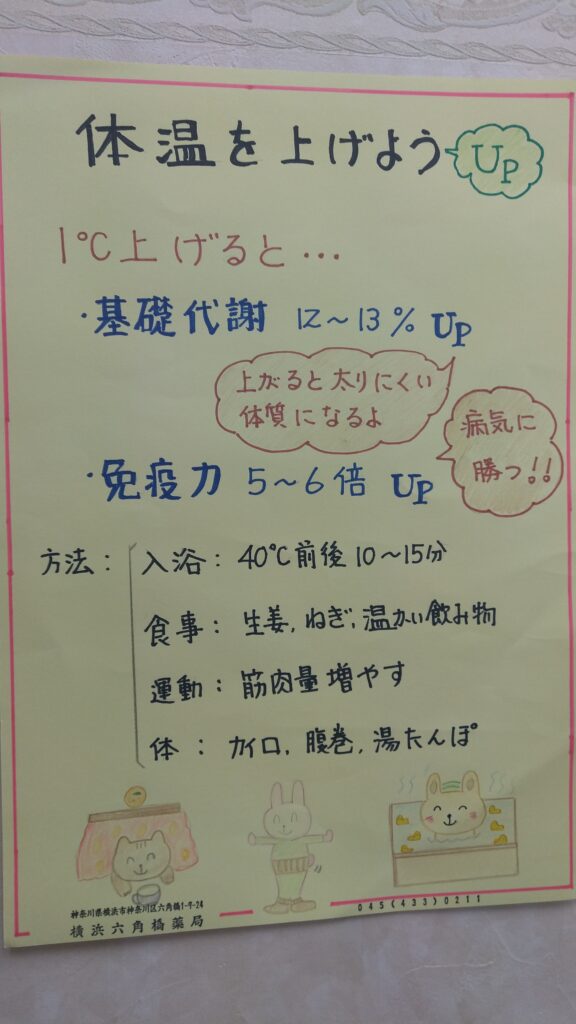 体温を上げよう UP
1℃上げると…
・基礎代謝 12～13% UP
上がると太りにくい
体質になるよ
病気に
勝つ!!
・免疫力 5～6倍 UP
方法: 入浴: 40℃前後10～15分
食事: 生姜, ねぎ, 温かい飲み物
運動: 筋肉量増やす
体: カイロ, 腹巻, 湯たんぽ
神奈川県横浜市神奈川区六角橋1-9-24
横浜六角橋薬局
045(433)0211